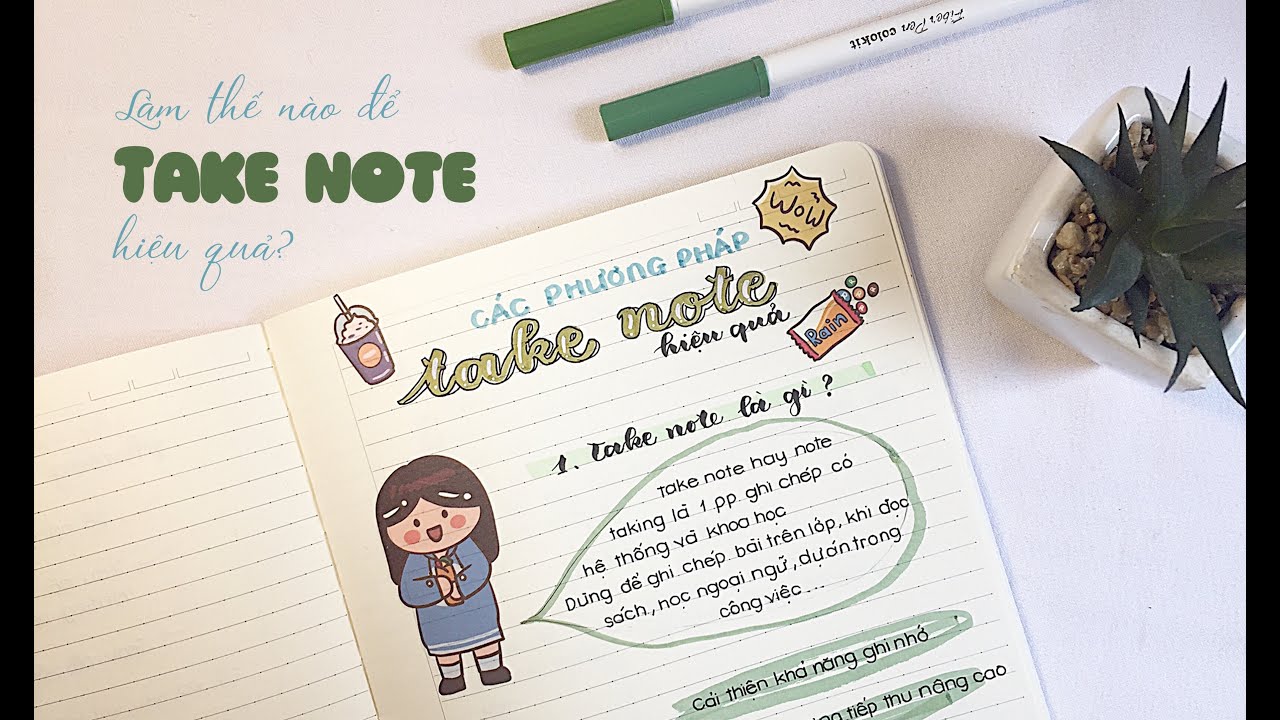 Làm thế nào để
TAKE NOTE
hiệu quả?
Fiber Pen colokit
WOW
CÁC PHƯƠNG PHÁP
take note
hiệu quả
Rain
1. Take note là gì ?
Take note hay note
taking là 1 pp ghi chép có
hệ thống và khoa học
Dùng để ghi chép bài trên lớp, khi đọc
sách, học ngoại ngữ, dự án trong
công việc...
Cải thiện khả năng ghi nhớ
tiếp thu nâng cao